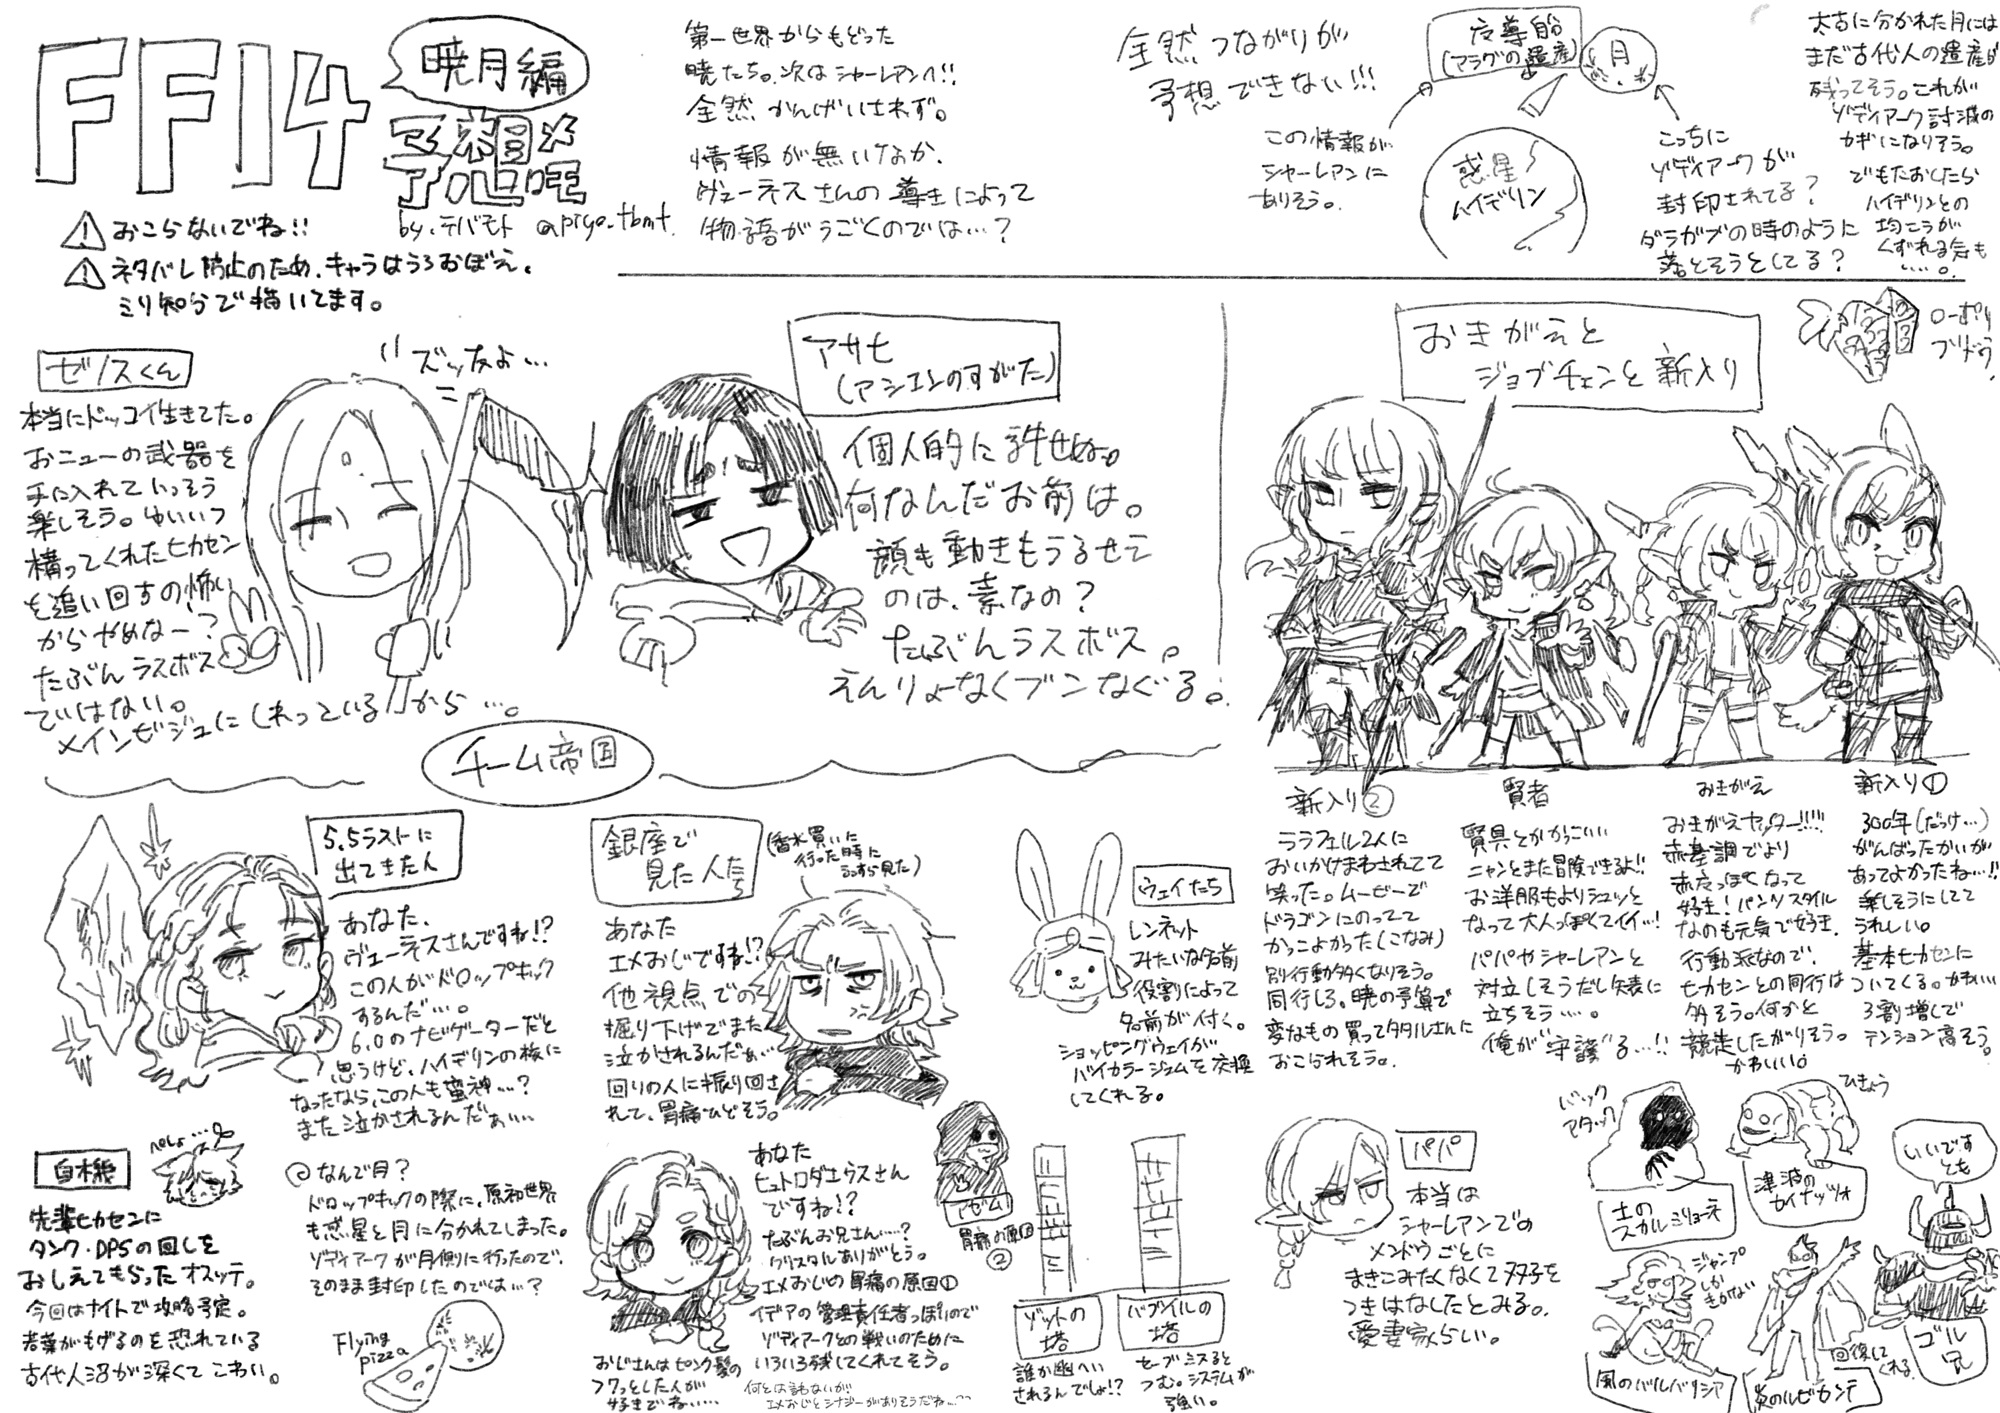 FF14
暁月編
予想メモ
by.テバモト @piyo_tbmt.
おこらないでね!!
ネタバレ防止のため、キャラはうろおぼえ、
ミリ知らで描いてます。
第一世界からもどった
暁たち。次はシャーレアンへ!!
全然かんげいされず。
情報が無いなか、
ヴェーネスさんの導きによって
物語がうごくのでは…?
全然つながりが
予想できない!!!
魔導船
(アラグの遺産)
月
惑星
ハイデリン
この情報が
シャーレアンに
ありそう。
こっちに
ゾディアークが
封印されてる?
ダラガブの時のように
落とそうとしてる?
太古に分かれた月には
まだ古代人の遺産が
残ってそう。これが
ゾディアーク討滅の
カギになりそう。
でもたおしたら
ハイデリンとの
均こうが
くずれる気も
……。
ゼノスくん
本当にドッコイ生きてた。
おニューの武器を
手に入れていっそう
楽しそう。ゆいいつ
構ってくれたヒカセン
を追い回すの怖い
からやめなー?
たぶんラスボス
ではない。
メインビジュにしれっといるから…。
ズッ友よ…
アサヒ
(アシエンのすがた)
個人的に許せぬ。
何なんだお前は。
顔も動きもうるせえ
のは、素なの?
たぶんラスボス。
えんりょーなくブンなぐる。
チーム帝国
おきがえと
ジョブチェンと新入り
ローポリ
ブドウ
新入り②
ララフェル2人に
おいかけまわされてて
笑った。ムービーで
ドラゴンにのってて
かっこよかった(こなみ)
別行動多くなりそう。
同行しろ。暁の予算で
変なもの買ってタタルさんに
おこられそう。
賢者
賢具とかかっこいい
ニャンとまた冒険できるよ!!
お洋服もよりシュッと
なって大人っぽくてイイ…!
パパやシャーレアンと
対立しそうだし矢表に
立ちそう…。
俺が"守護"る…!!
おきがえ
おきがえヤッター!!!!
赤基調でより
赤魔っぽくなって
好き!パンツスタイル
なのも元気で好き。
行動派なので、
ヒカセンとの同行は
多そう。何かと
競走したがりそう。
かわいい。
新入り①
300年(だっけ…)
がんばったかいが
あってよかったね…!!
楽しそうにしてて
うれしい。
基本ヒカセンに
ついてくる。かわいい
3割増しで
テンション高そう。
5.5ラストに
出てきた人
あなた、
ヴェーネスさんですね!?
この人がドロップキック
するんだ…。
6.0のナビゲーターだと
思うけど、ハイデリンの核に
なったなら、この人も蛮神…?
また泣かされるんだぁ…
銀座で
見た人たち
(香水買いに
行った時に
うっすら見た)
あなた
エメおじですね!?
他視点での
掘り下げでまた
泣かされるんだぁ…
回りの人に振り回さ
れて、胃痛ひどそう。
ウェイたち
レンネット
みたいな名前
役割によって
名前が付く。
ショッピングウェイが
バイカラージェムを交換
してくれる。
自機
new…
先輩ヒカセンに
タンク・DPSの回しを
おしえてもらったオスッテ。
今回はナイトで攻略予定。
若葉がもげるのを恐れている
古代人沼が深くてこわい。
◎なんで月?
ドロップキックの際に、原初世界
も惑星と月に分かれてしまった。
ゾディアークが月側に行ったので、
そのまま封印したのでは…?
Flying
pizza
おじさんはピンク髪の
フワっとした人が
好きでね……
あなた
ヒュトロダエウスさん
ですね!?
たぶんお兄さん…?
クリスタルありがとう。
エメおじの胃痛の原因①
イデアの管理責任者っぽいので
ゾディアークとの戦いのために
いろいろ残してくれてそう。
何とは言わないが
エメおじとシナジーがありそうだね…??
アゼム!
胃痛の原因
②
ゾットの
塔
誰か幽へい
されるんでしょ!?
バブイルの
塔
セーブミスると
つむ。システムが
強い。
パパ
本当は
シャーレアンでの
メンドウごとに
まきこみたくなくて双子を
つきはなしたとみる。
愛妻家らしい。
バック
アタック
土の
スカルミリョーネ
ひきょう
津波の
カイナッツォ
ジャンプ
しか
きかない
風のバルバリシア
炎のルビカンテ
回復して
くれる
いいです
とも
ゴル
兄